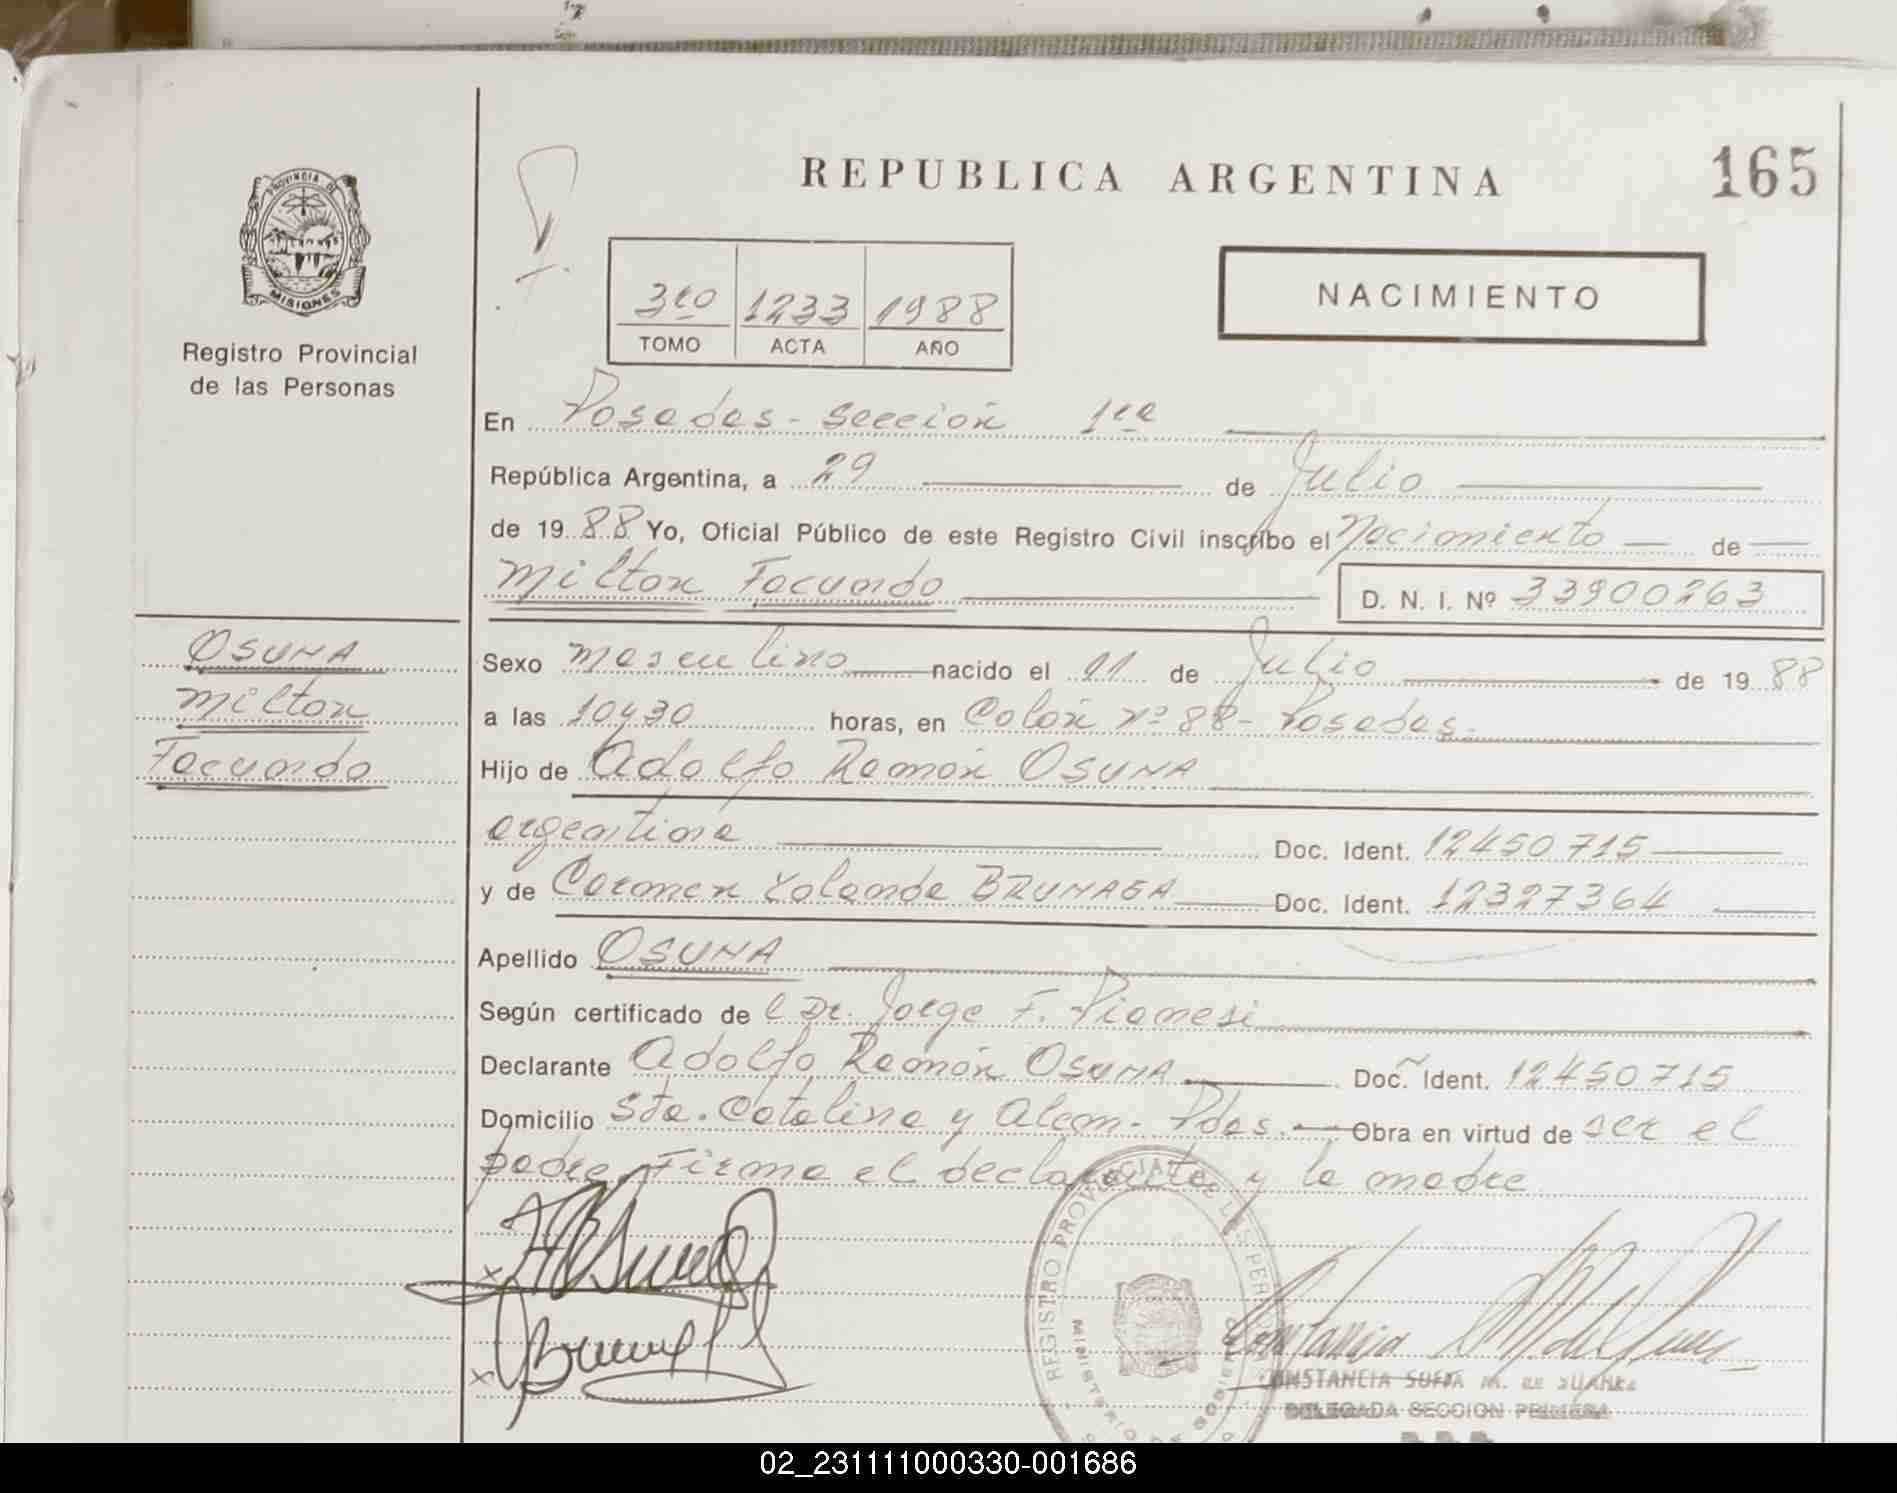 REPUBLICA ARGENTINA
165
PROVINCIA DE
MISIONES
Registro Provincial
de las Personas
3ro 1233 1988
TOMO ACTA AÑO
NACIMIENTO
En Posadas - Sección 1ra
República Argentina, a 29 de Julio
de 1988 Yo, Oficial Público de este Registro Civil inscribo el Nacimiento de
Milton Facundo D. N. I. Nº 33900263
OSUNA
Milton
Facundo
Sexo masculino nacido el 11 de Julio de 1988
a las 10y30 horas, en Colón nº 88 - Posadas.
Hijo de Adolfo Ramón OSUNA
argentina Doc. Ident. 12450715
y de Carmen Yolanda BRUNAGA Doc. Ident. 12327364
Apellido OSUNA
Según certificado de l Dr. Jorge F. Pianesi
Declarante Adolfo Ramón OSUNA Doc. Ident. 12450715
Domicilio Sta. Catalina y Alem - Pdas. Obra en virtud de ser el
padre. Firma el declarante y la madre
REGISTRO PROVINCIAL DE LAS PERSONAS
MINISTERIO DE GOBIERNO
CONSTANCIA SOFIA M. DE
DELEGADA SECCION PRIMERA
02_231111000330-001686